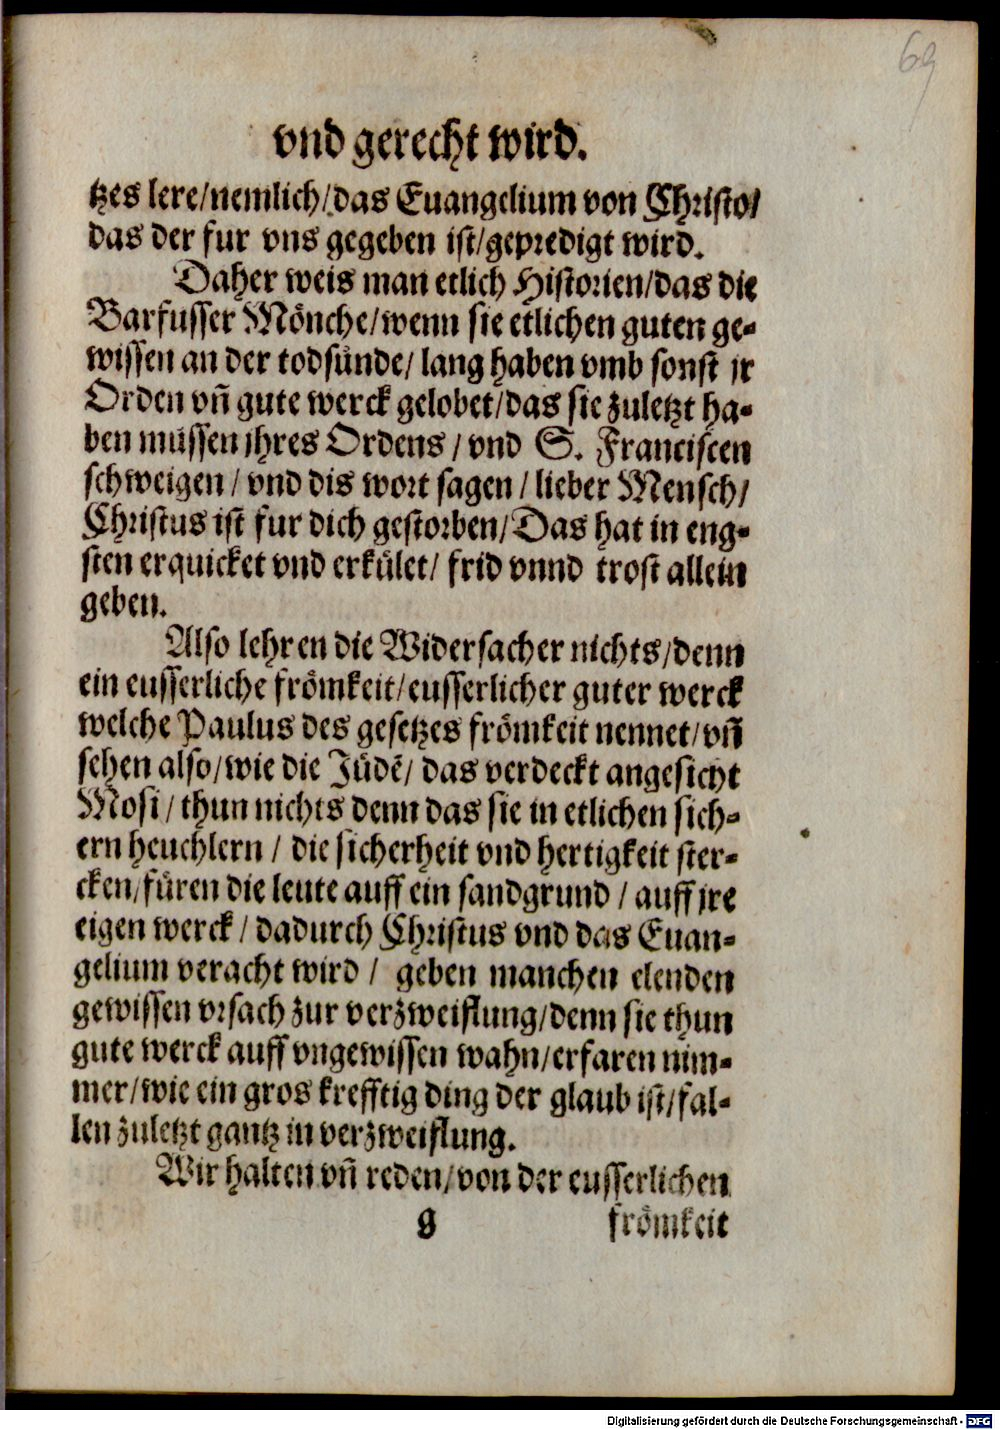 69
vnd gerecht wird.
tzes lere/nemlich/das Euangelium von Christo/
das der fur vns gegeben ist/gepredigt wird.
Daher weis man etlich Historien/das die
Barfusser Mönche/wenn sie etlichen guten ge-
wissen an der todsünde/ lang haben vmb sonst jr
Orden vñ gute werck gelobet/das sie zuletzt ha-
ben müssen jhres Ordens / vnd S. Franciscen
schweigen / vnd dis wort sagen / lieber Mensch/
Christus ist fur dich gestorben/Das hat in eng-
sten erquicket vnd erkület/ frid vnnd trost allein
geben.
Also lehren die Widersacher nichts/denn
ein eusserliche frömkeit/eusserlicher guter werck
welche Paulus des gesetzes frömkeit nennet/vñ
sehen also/wie die Jüdē/ das verdeckt angesicht
Mosi/ thun nichts denn das sie in etlichen sich-
ern heuchlern / die sicherheit vnd hertigkeit ster-
cken/füren die leute auff ein sandgrund / auff jre
eigen werck / dadurch Christus vnd das Euan-
gelium veracht wird / geben manchen elenden
gewissen vrsach zur verzweiflung/denn sie thun
gute werck auff vngewissen wahn/erfaren nim-
mer/wie ein gros krefftig ding der glaub ist/fal-
len zuletzt gantz in verzweiflung.
Wir halten vñ reden/von der eusserlichen
g frömkeit
Digitalisierung gefördert durch die Deutsche Forschungsgemeinschaft - DFG